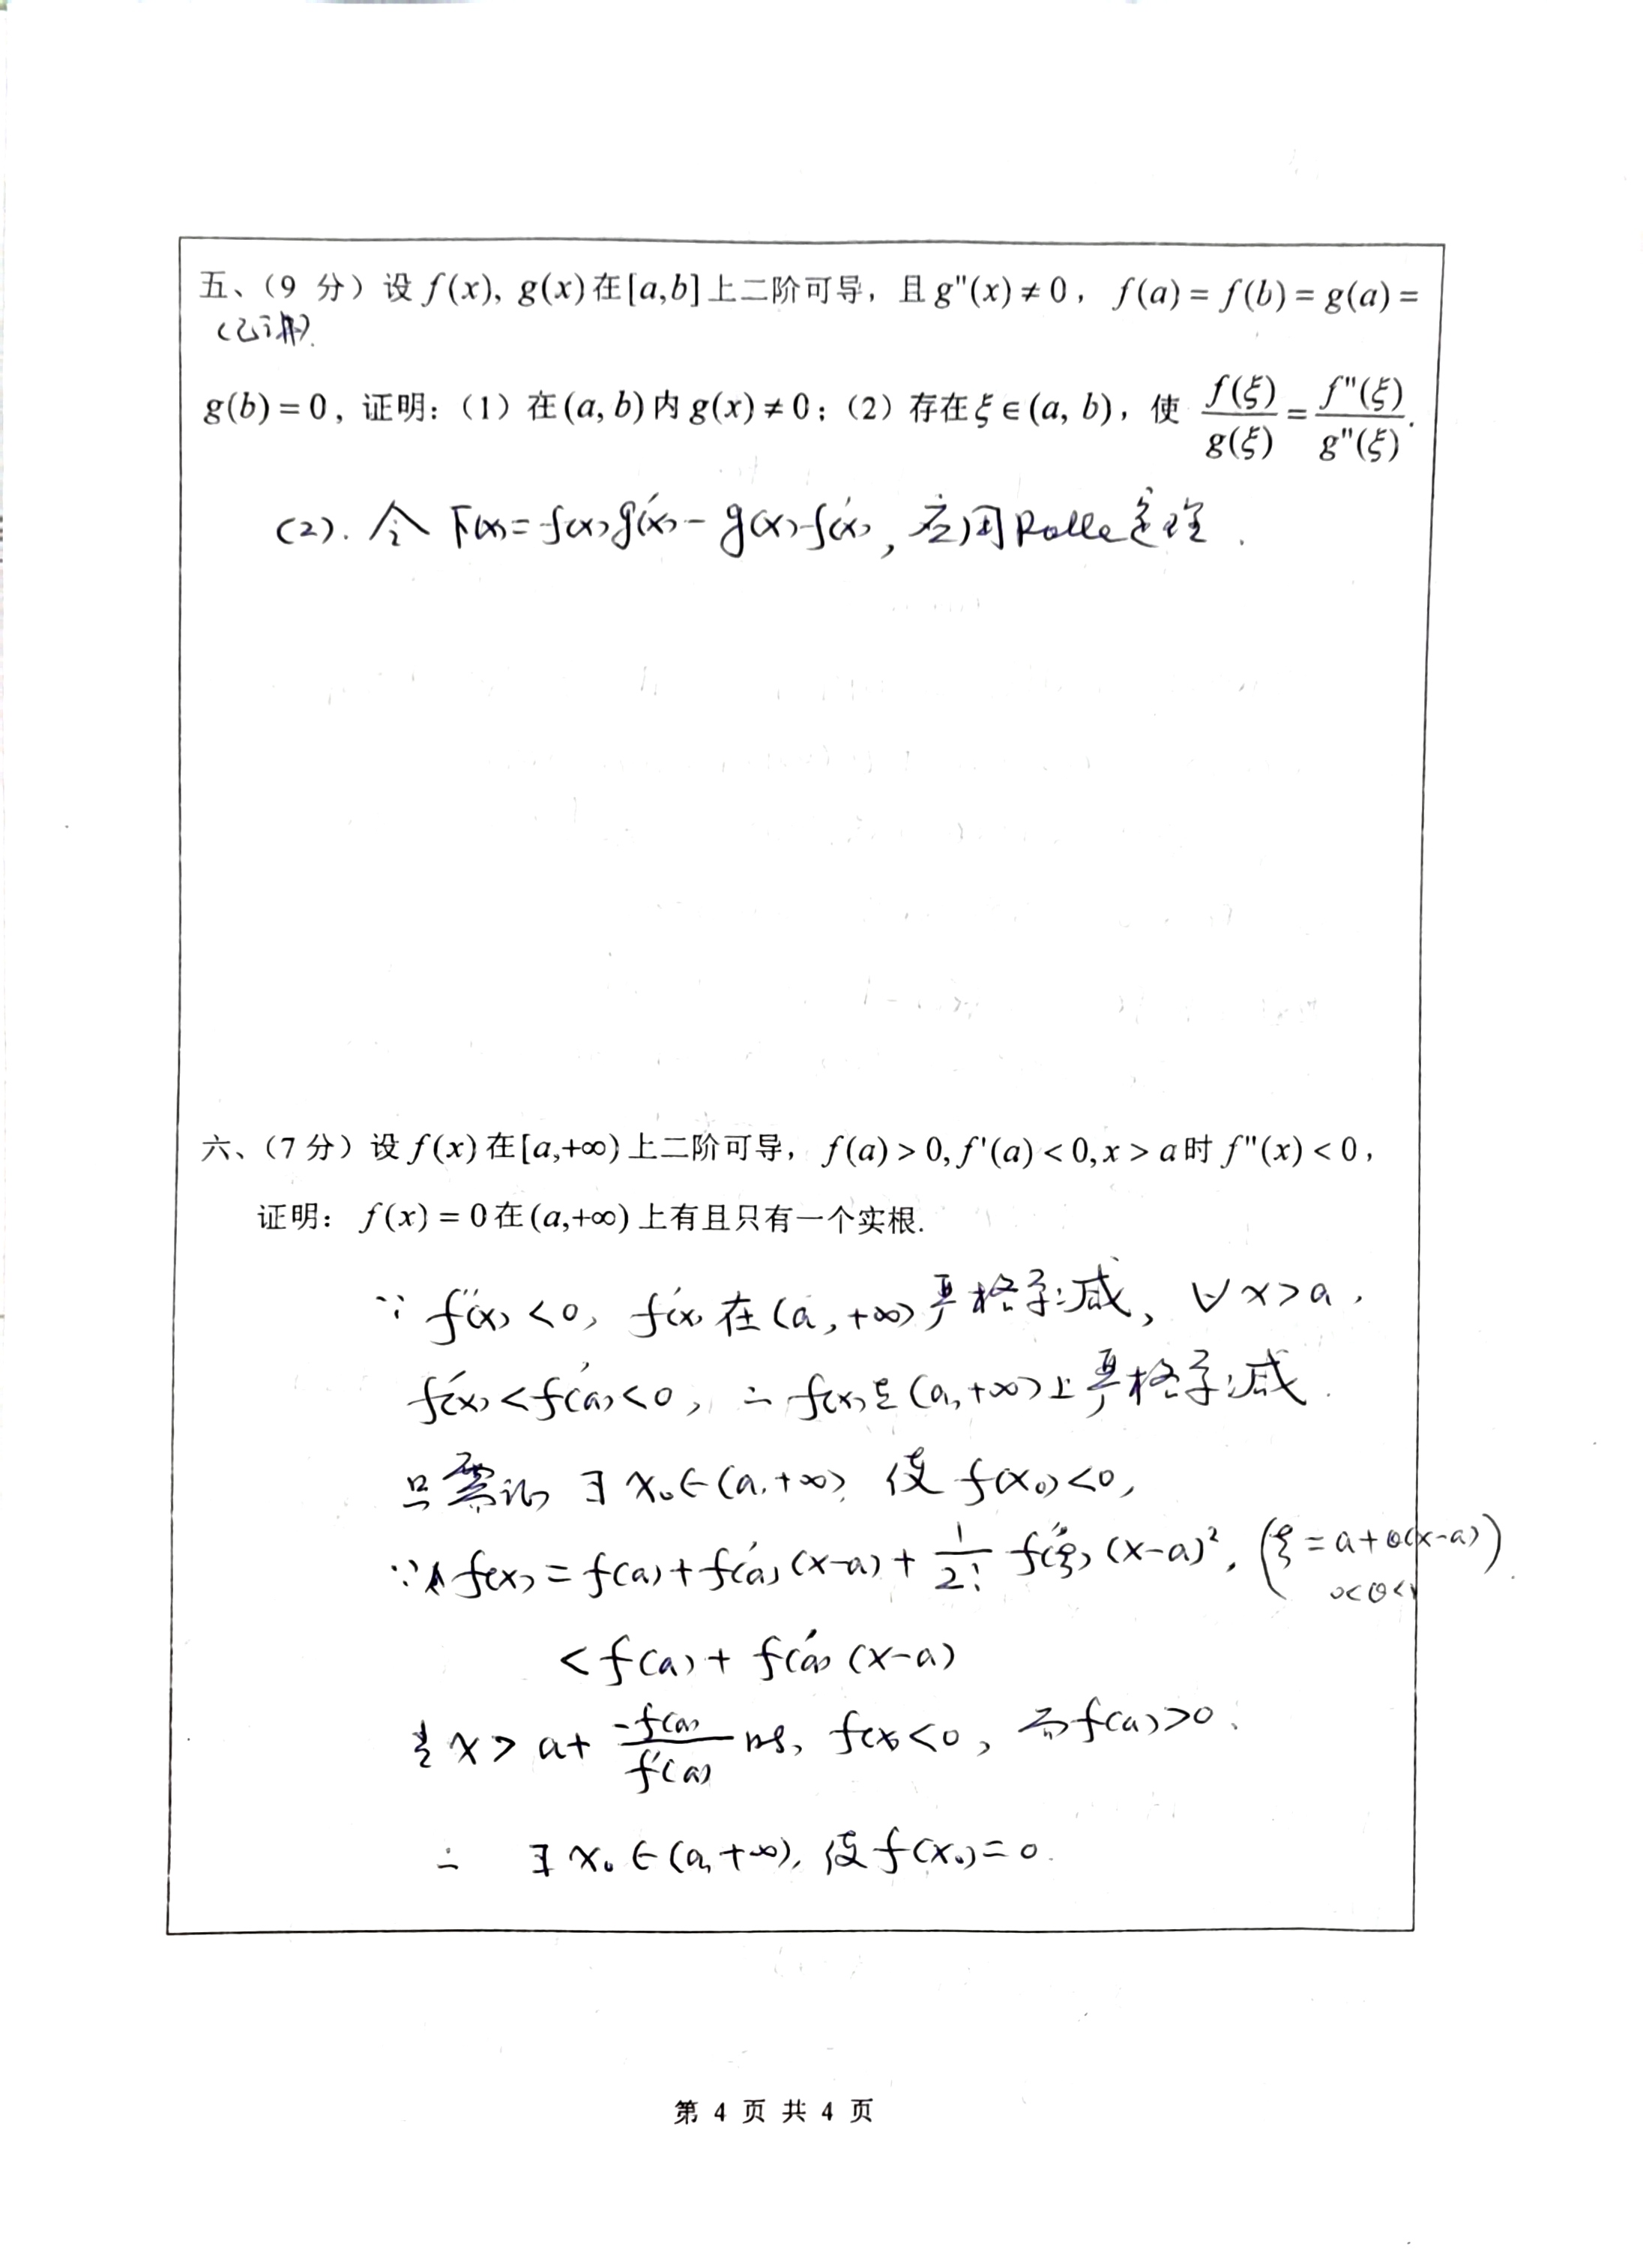 五、（9 分）设 f(x), g(x) 在[a,b]上二阶可导，且 g"(x) ≠ 0， f(a) = f(b) = g(a) =
（已讲）.
g(b) = 0，证明：（1）在(a, b)内 g(x) ≠ 0；（2）存在 ξ ∈ (a, b)，使 f(ξ)/g(ξ) = f"(ξ)/g"(ξ).
(2). 令 F(x) = f(x)g'(x) - g(x)f'(x), 应用Rolle定理.
六、（7 分）设 f(x) 在[a,+∞)上二阶可导， f(a) > 0, f'(a) < 0, x > a 时 f"(x) < 0，
证明： f(x) = 0 在(a,+∞)上有且只有一个实根.
∵ f"(x) < 0, f'(x) 在 (a, +∞) 严格单减, ∀ x > a,
f'(x) < f'(a) < 0, ∴ f(x)在(a, +∞)上严格单减.
只需证 ∃ x₀ ∈ (a, +∞), 使 f(x₀) < 0,
∵ f(x) = f(a) + f'(a)(x-a) + 1/2! f"(ξ)(x-a)², (ξ = a+θ(x-a))
0<θ<1
< f(a) + f'(a)(x-a)
当 x > a + -f(a)/f'(a) 时, f(x) < 0, 而 f(a) > 0.
∴ ∃ x₀ ∈ (a, +∞), 使 f(x₀) = 0.
第 4 页 共 4 页